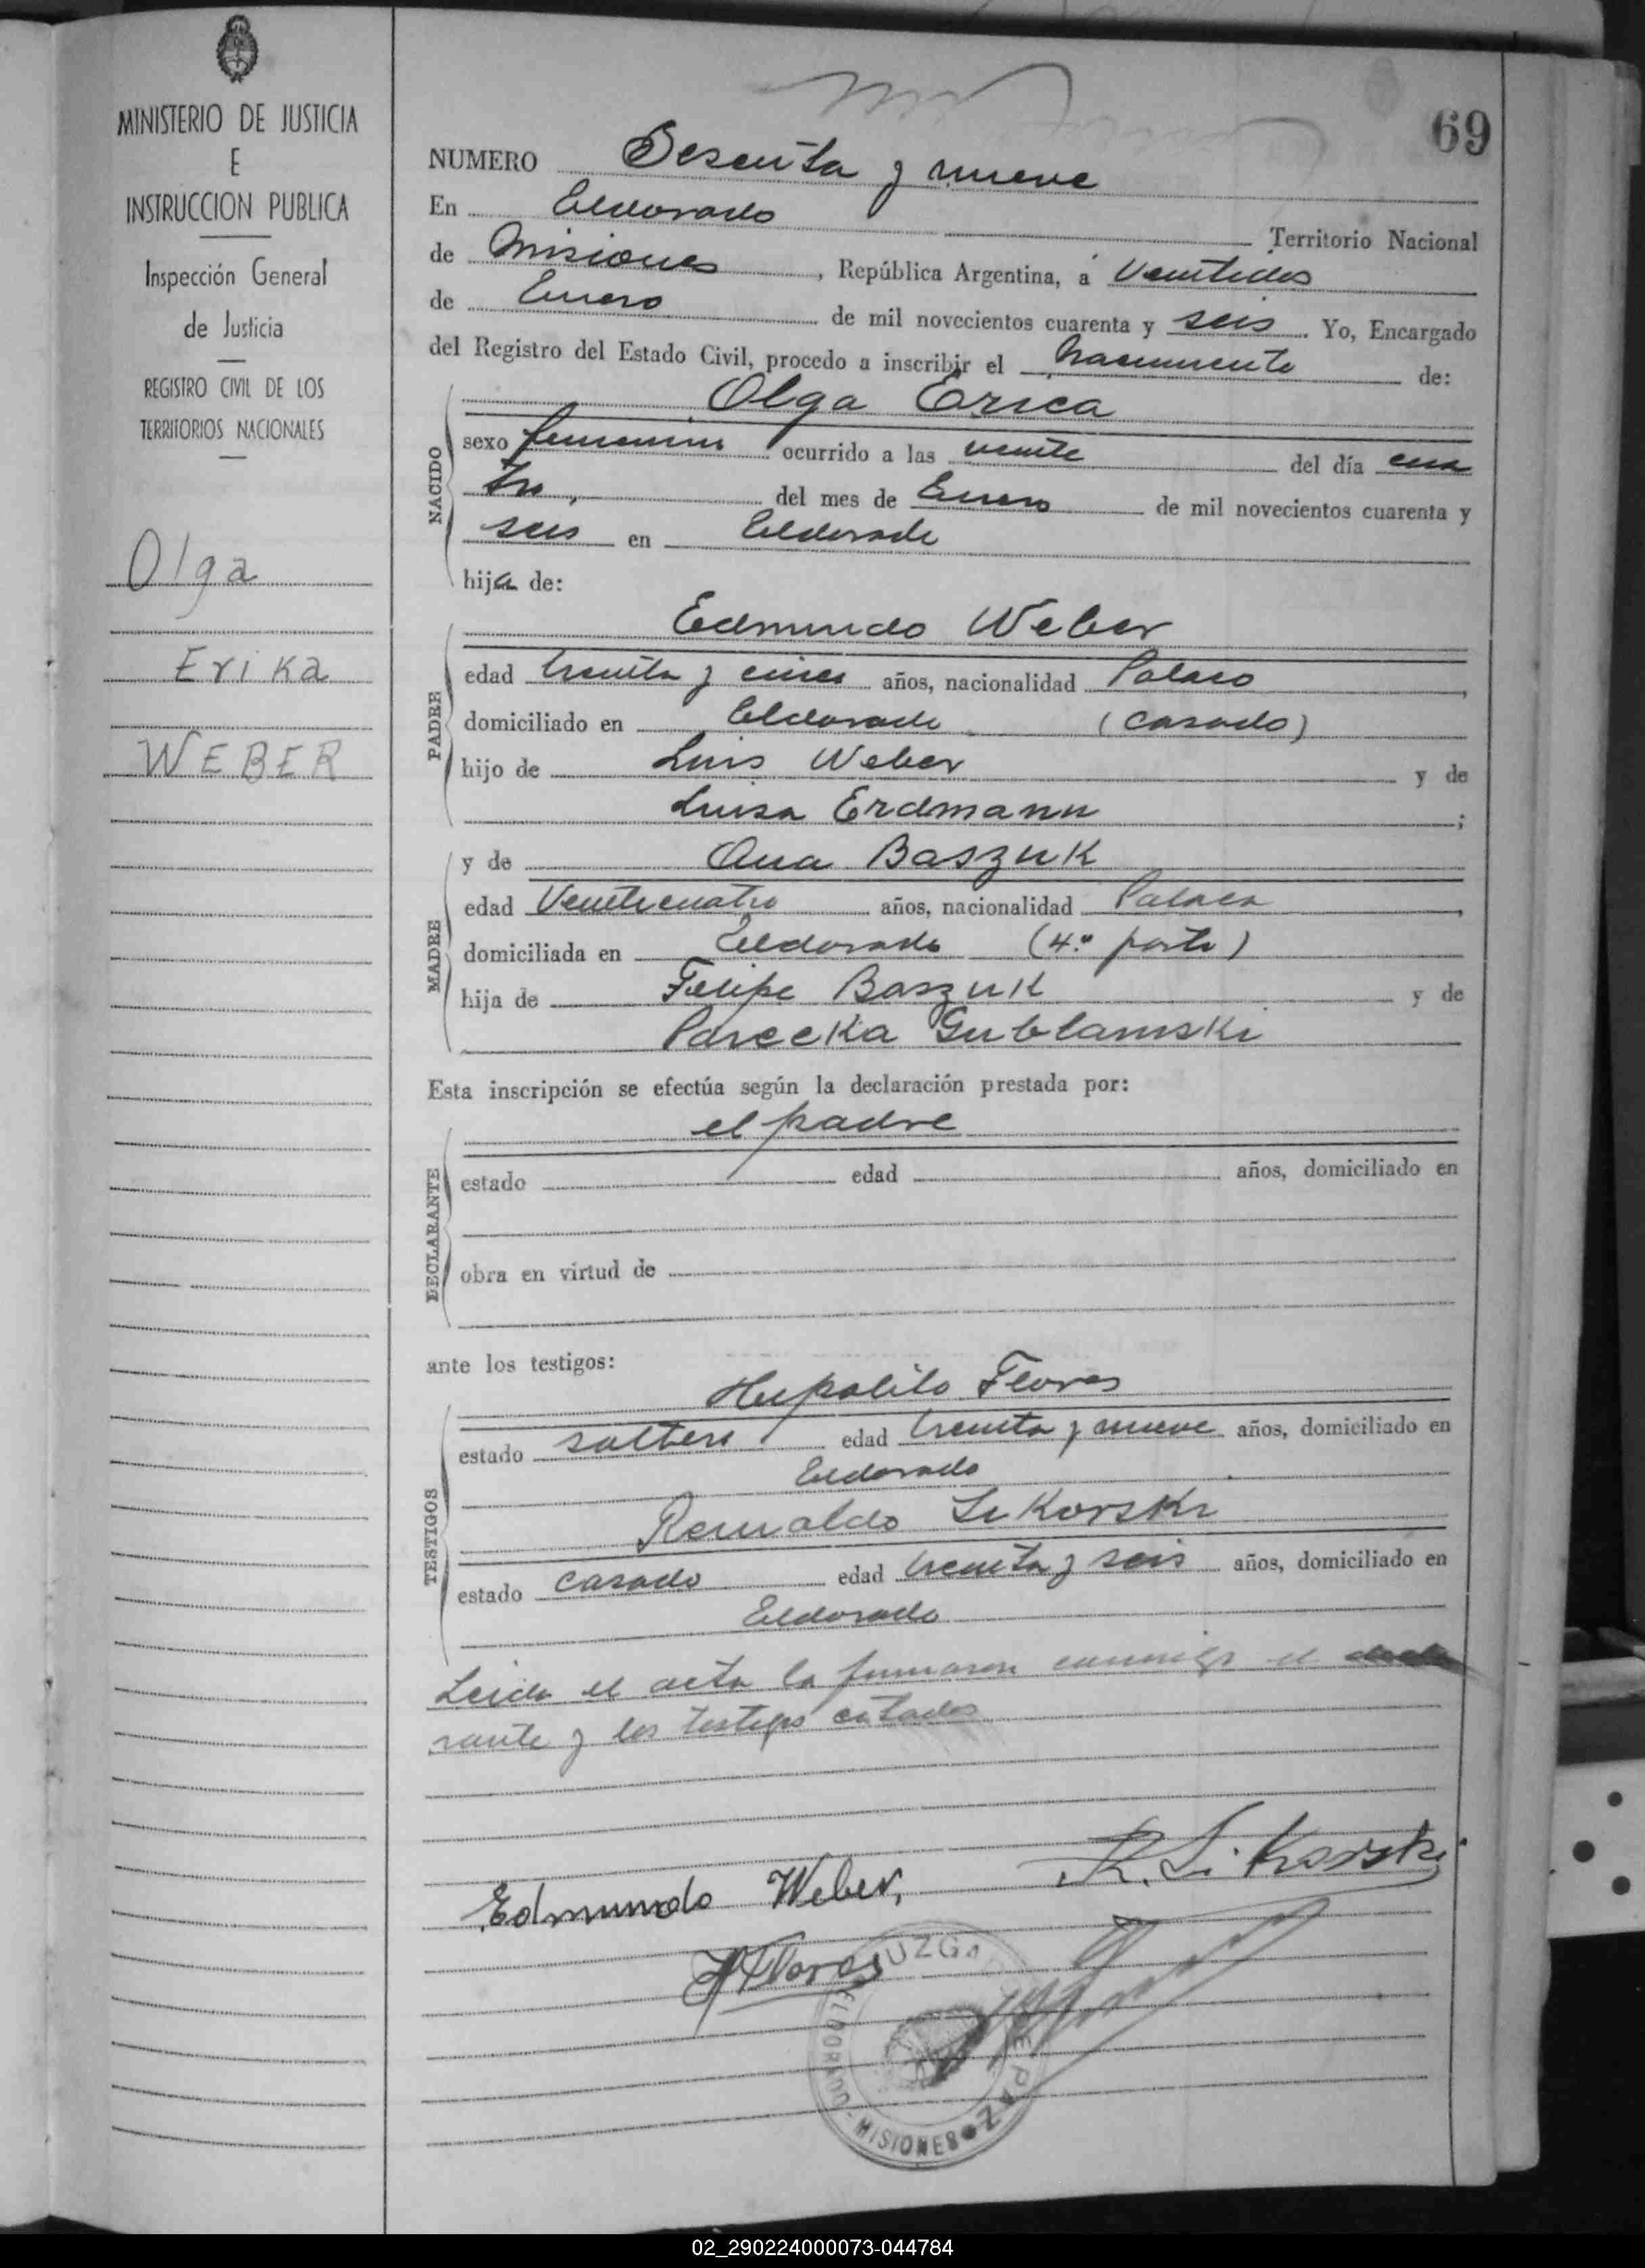 MINISTERIO DE JUSTICIA
E
INSTRUCCION PUBLICA
Inspección General
de Justicia
REGISTRO CIVIL DE LOS
TERRITORIOS NACIONALES
Olga
Erika
WEBER
69
NUMERO Sesenta y nueve
En Eldorado Territorio Nacional
de Misiones, República Argentina, á Veintidos
de Enero de mil novecientos cuarenta y seis Yo, Encargado
del Registro del Estado Civil, procedo a inscribir el Nacimiento de:
Olga Erica
NACIDO
sexo femenino ocurrido a las veinte del día cua
tro, del mes de Enero de mil novecientos cuarenta y
seis en Eldorado
hija de:
Edmundo Weber
PADRE
edad treinta y cinco años, nacionalidad Polaco,
domiciliado en Eldorado (casado)
hijo de Luis Weber y de
Luisa Erdmann;
y de Ana Baszuk
MADRE
edad Veinticuatro años, nacionalidad Polaca,
domiciliada en Eldorado (4.° parto)
hija de Felipe Baszuk y de
Parecka Gublamski
Esta inscripción se efectúa según la declaración prestada por:
el padre
DECLARANTE
estado edad años, domiciliado en
obra en virtud de
ante los testigos:
Hipolito Flores
TESTIGOS
estado soltero edad treinta y nueve años, domiciliado en
Eldorado
Reinaldo Sikorski
estado casado edad treinta y seis años, domiciliado en
Eldorado
Leida el acta la firmaron conmigo el decla
rante y los testigos citados
Edmundo Weber, R. Sikorski
H Flores
JUZGADO DE PAZ
ELDORADO - MISIONES
02_290224000073-044784